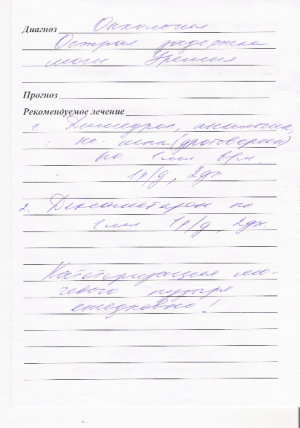 Диагноз Онкология
Острая задержка
мочи Уремия
Прогноз
Рекомендуемое лечение
1. Димедрол, анальгин,
но-шпа (дротаверин)
по 1 мл в/м
1 р/д, 2 дн
2. Дексаметазон по
1 мл 1 р/д, 2 дн.
Катетеризация мо-
чевого пузыря
ежедневно!